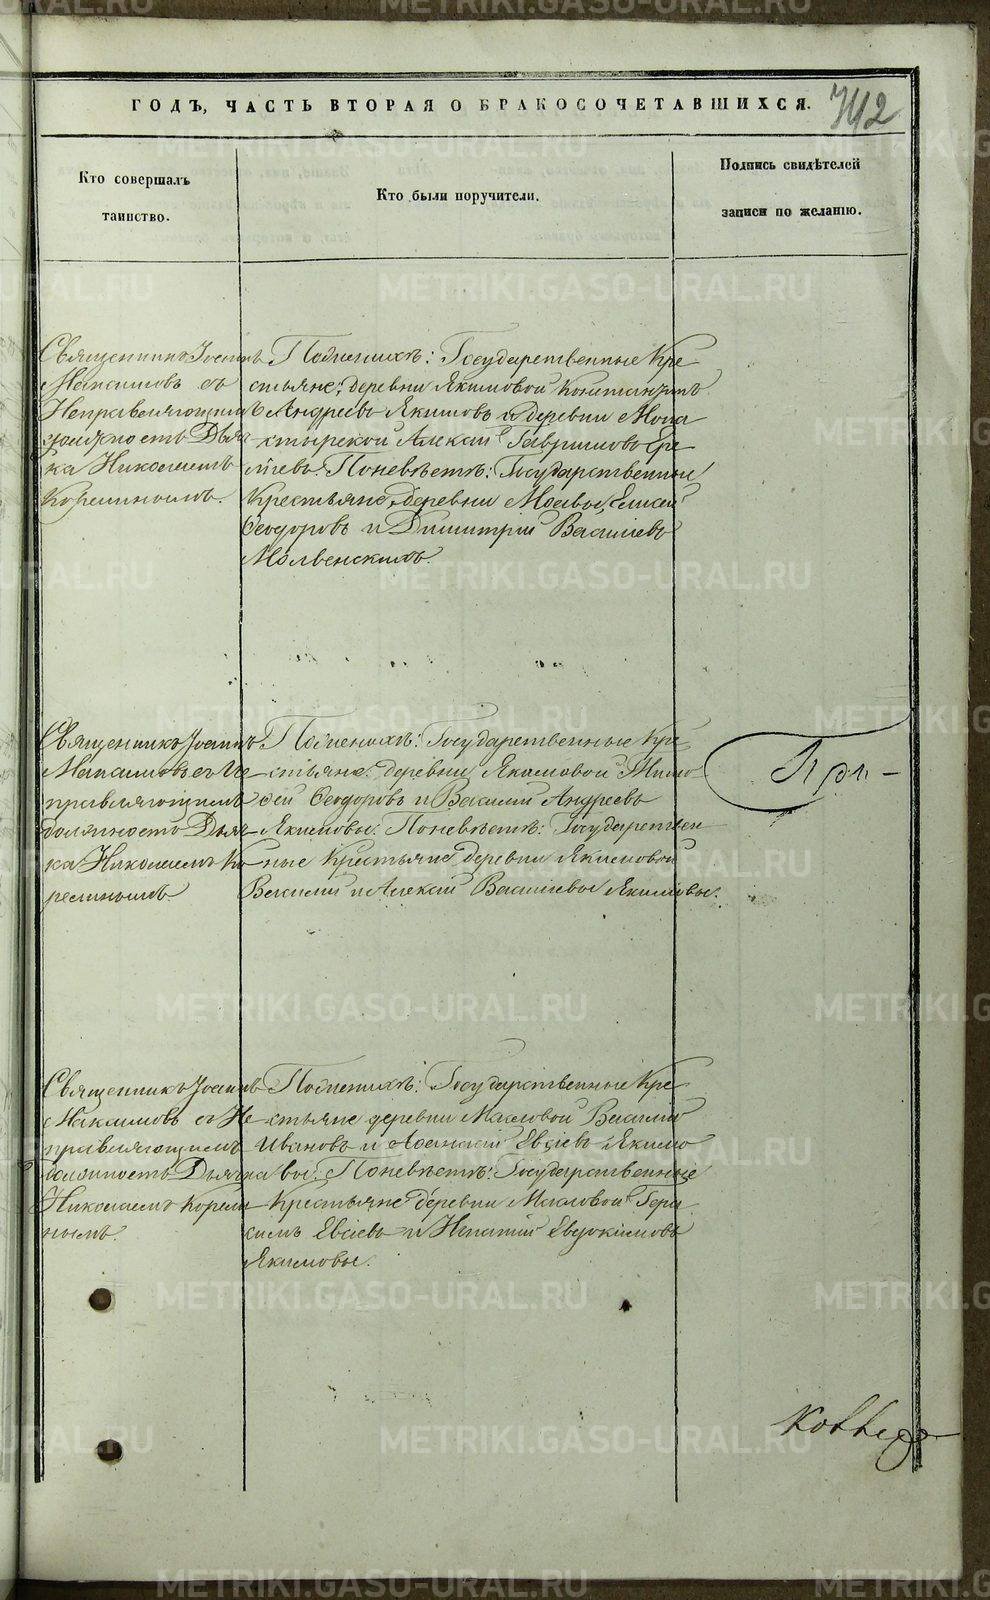 ГОДЪ, ЧАСТЬ ВТОРАЯ О БРАКОСОЧЕТАВШИХСЯ.
742
Кто совершалъ
таинство.
Кто были поручители.
Подпись свидѣтелей
записи по желанію.
Священникъ Іоаннъ
Максимовъ съ
Исправляющимъ
должность Дьяч
ка Николаемъ
Корелинымъ.
По женихѣ: Государственные Кре
стьяне, деревни Якимовой Константинъ
Андреевъ Якимовъ и деревни Мона
стырской Алексій Гавриловъ
По невѣстѣ: Государственные
Крестьяне, деревни Елисей
Ѳеодоровъ и Димитрій Василіевъ
Священникъ Іоаннъ
Максимовъ съ Ис
правляющимъ
должность Дьяч
ка Николаемъ Ко
релинымъ
По женихѣ: Государственные Кре
стьяне: деревни Якимовой Тимо
ѳей Ѳеодоровъ и Василій Андреевъ
Якимовы. По невѣстѣ: Государствен
ные Крестьяне деревни Якимовой
Василій и Алексій Василіевы Якимовы.
Священникъ Іоаннъ
Максимовъ съ Ис
правляющимъ
должность Дьячка
Николаемъ Корели
нымъ.
По женихѣ: Государственные Кре
стьяне деревни Масловой Василій
Ивановъ и Аѳанасій Евсіевъ Якимо
вы. По невѣстѣ: Государственные
Крестьяне деревни Масловой Гера
симъ Евсіевъ и Игнатій Евдокимовъ
Якимовы.
METRIKI.GASO-URAL.RU